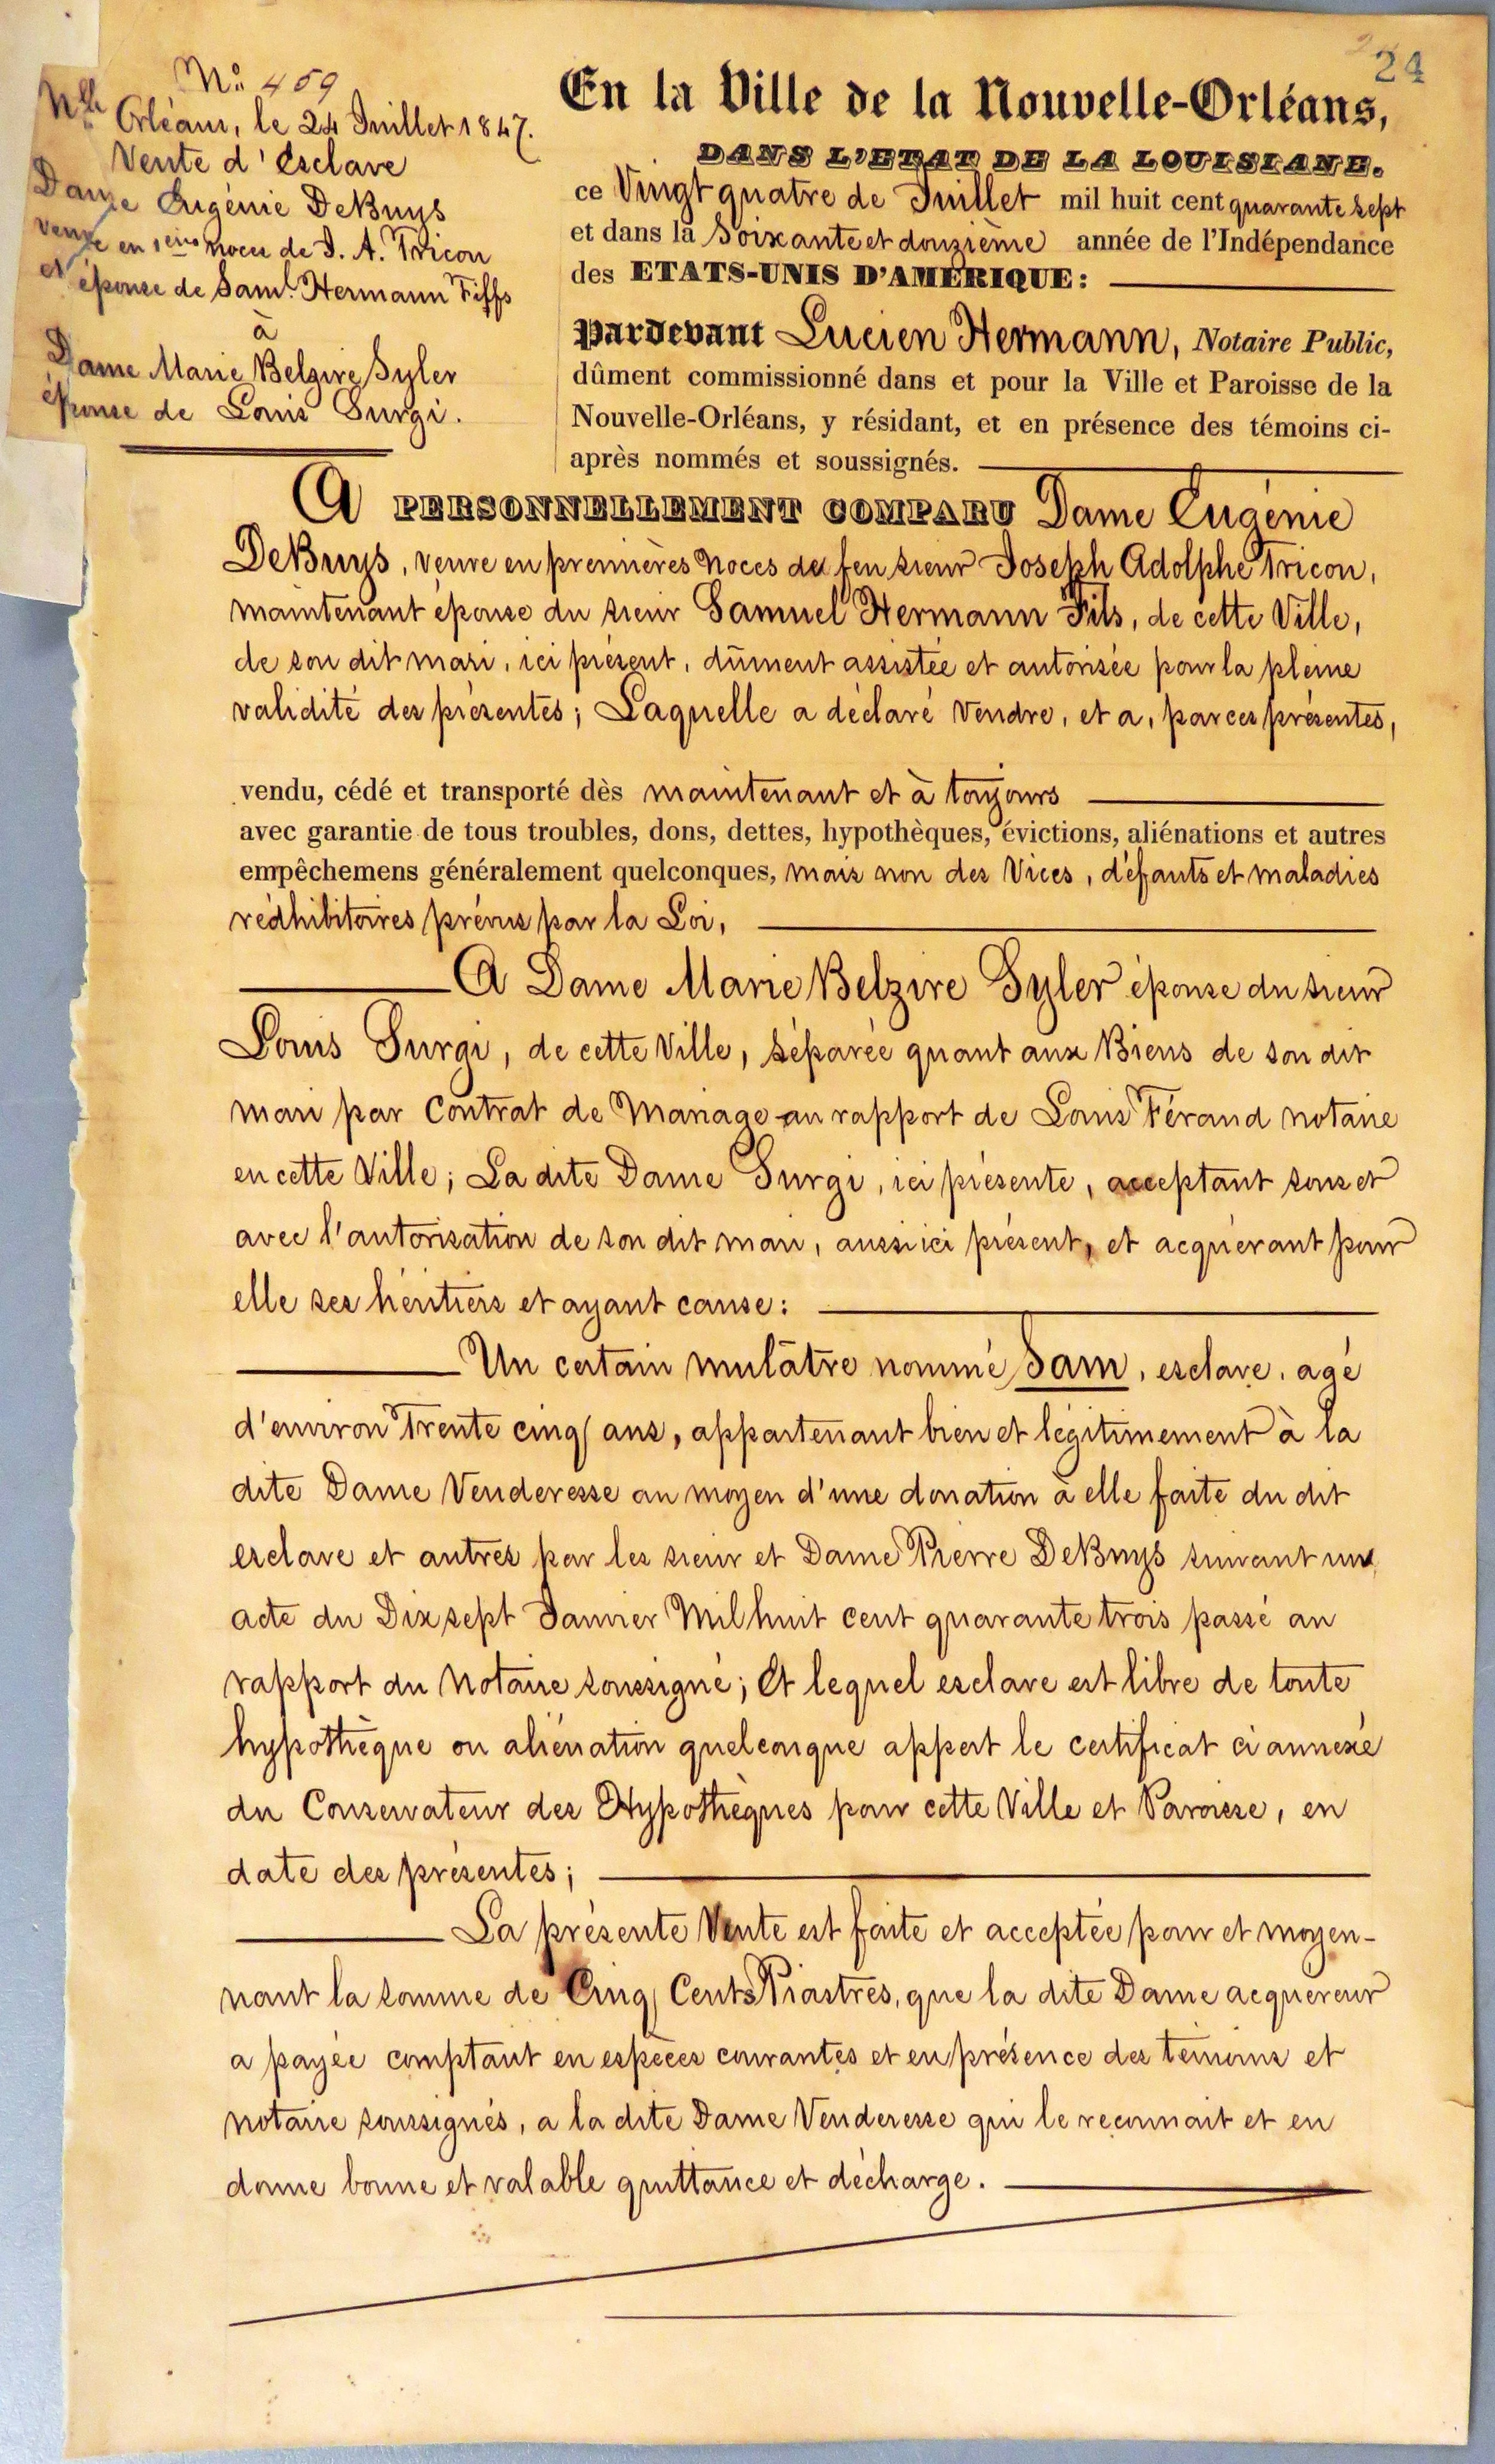 24
N.° 459
Nlle Orléans, le 24 Juillet 1847.
Vente d'Esclave
Dame Eugénie DeBuys
veuve en 1eres noces de J. A. Tricon
et épouse de Saml. Hermann Fiffs
à
Dame Marie Belzire Syler
épouse de Louis Surgi.
En la Ville de la Nouvelle-Orléans,
DANS L'ETAT DE LA LOUISIANE.
ce Vingt quatre de Juillet mil huit cent quarante sept
et dans la Soixante et douzième année de l'Indépendance
des ETATS-UNIS D'AMÉRIQUE:
Pardevant Lucien Hermann, Notaire Public,
dûment commissionné dans et pour la Ville et Paroisse de la
Nouvelle-Orléans, y résidant, et en présence des témoins ci-
après nommés et soussignés.
A PERSONNELLEMENT COMPARU Dame Eugénie
DeBuys, veuve en premières Noces de feu sieur Joseph Adolphe Tricon,
maintenant épouse du sieur Samuel Hermann Fils, de cette Ville,
de son dit mari, ici présent, dûment assistée et autorisée pour la pleine
validité des présentes; Laquelle a déclaré Vendre, et a, par ces présentes,
vendu, cédé et transporté dès maintenant et à toujours
avec garantie de tous troubles, dons, dettes, hypothèques, évictions, aliénations et autres
empêchemens généralement quelconques, mais non des Vices, défauts et maladies
rédhibitoires prévus par la Loi,
A Dame Marie Belzire Syler épouse du sieur
Louis Surgi, de cette Ville, séparée quant aux Biens de son dit
mari par Contrat de Mariage au rapport de Louis Férand notaire
en cette Ville; La dite Dame Surgi, ici présente, acceptant sous et
avec l'autorisation de son dit mari, aussi ici présent, et acquérant pour
elle ses héritiers et ayant cause:
Un certain mulâtre nommé Sam, esclave, agé
d'environ Trente cinq ans, appartenant bien et légitimement à la
dite Dame Venderesse au moyen d'une donation à elle faite du dit
esclave et autres par les sieur et Dame Pierre DeBuys suivant un
acte du Dix sept Janvier Mil huit cent quarante trois passé au
rapport du Notaire soussigné; Et lequel esclave est libre de toute
hypothèque ou aliénation quelconque appert le certificat ci annexé
du Conservateur des Hypothèques pour cette Ville et Paroisse, en
date des présentes;
La présente Vente est faite et acceptée pour et moyen-
nant la somme de Cinq Cents Piastres, que la dite Dame acquereur
a payée comptant en espèces courantes et en présence des temoins et
notaire soussignés, a la dite Dame Venderesse qui le reconnait et en
donne bonne et valable quittance et décharge.